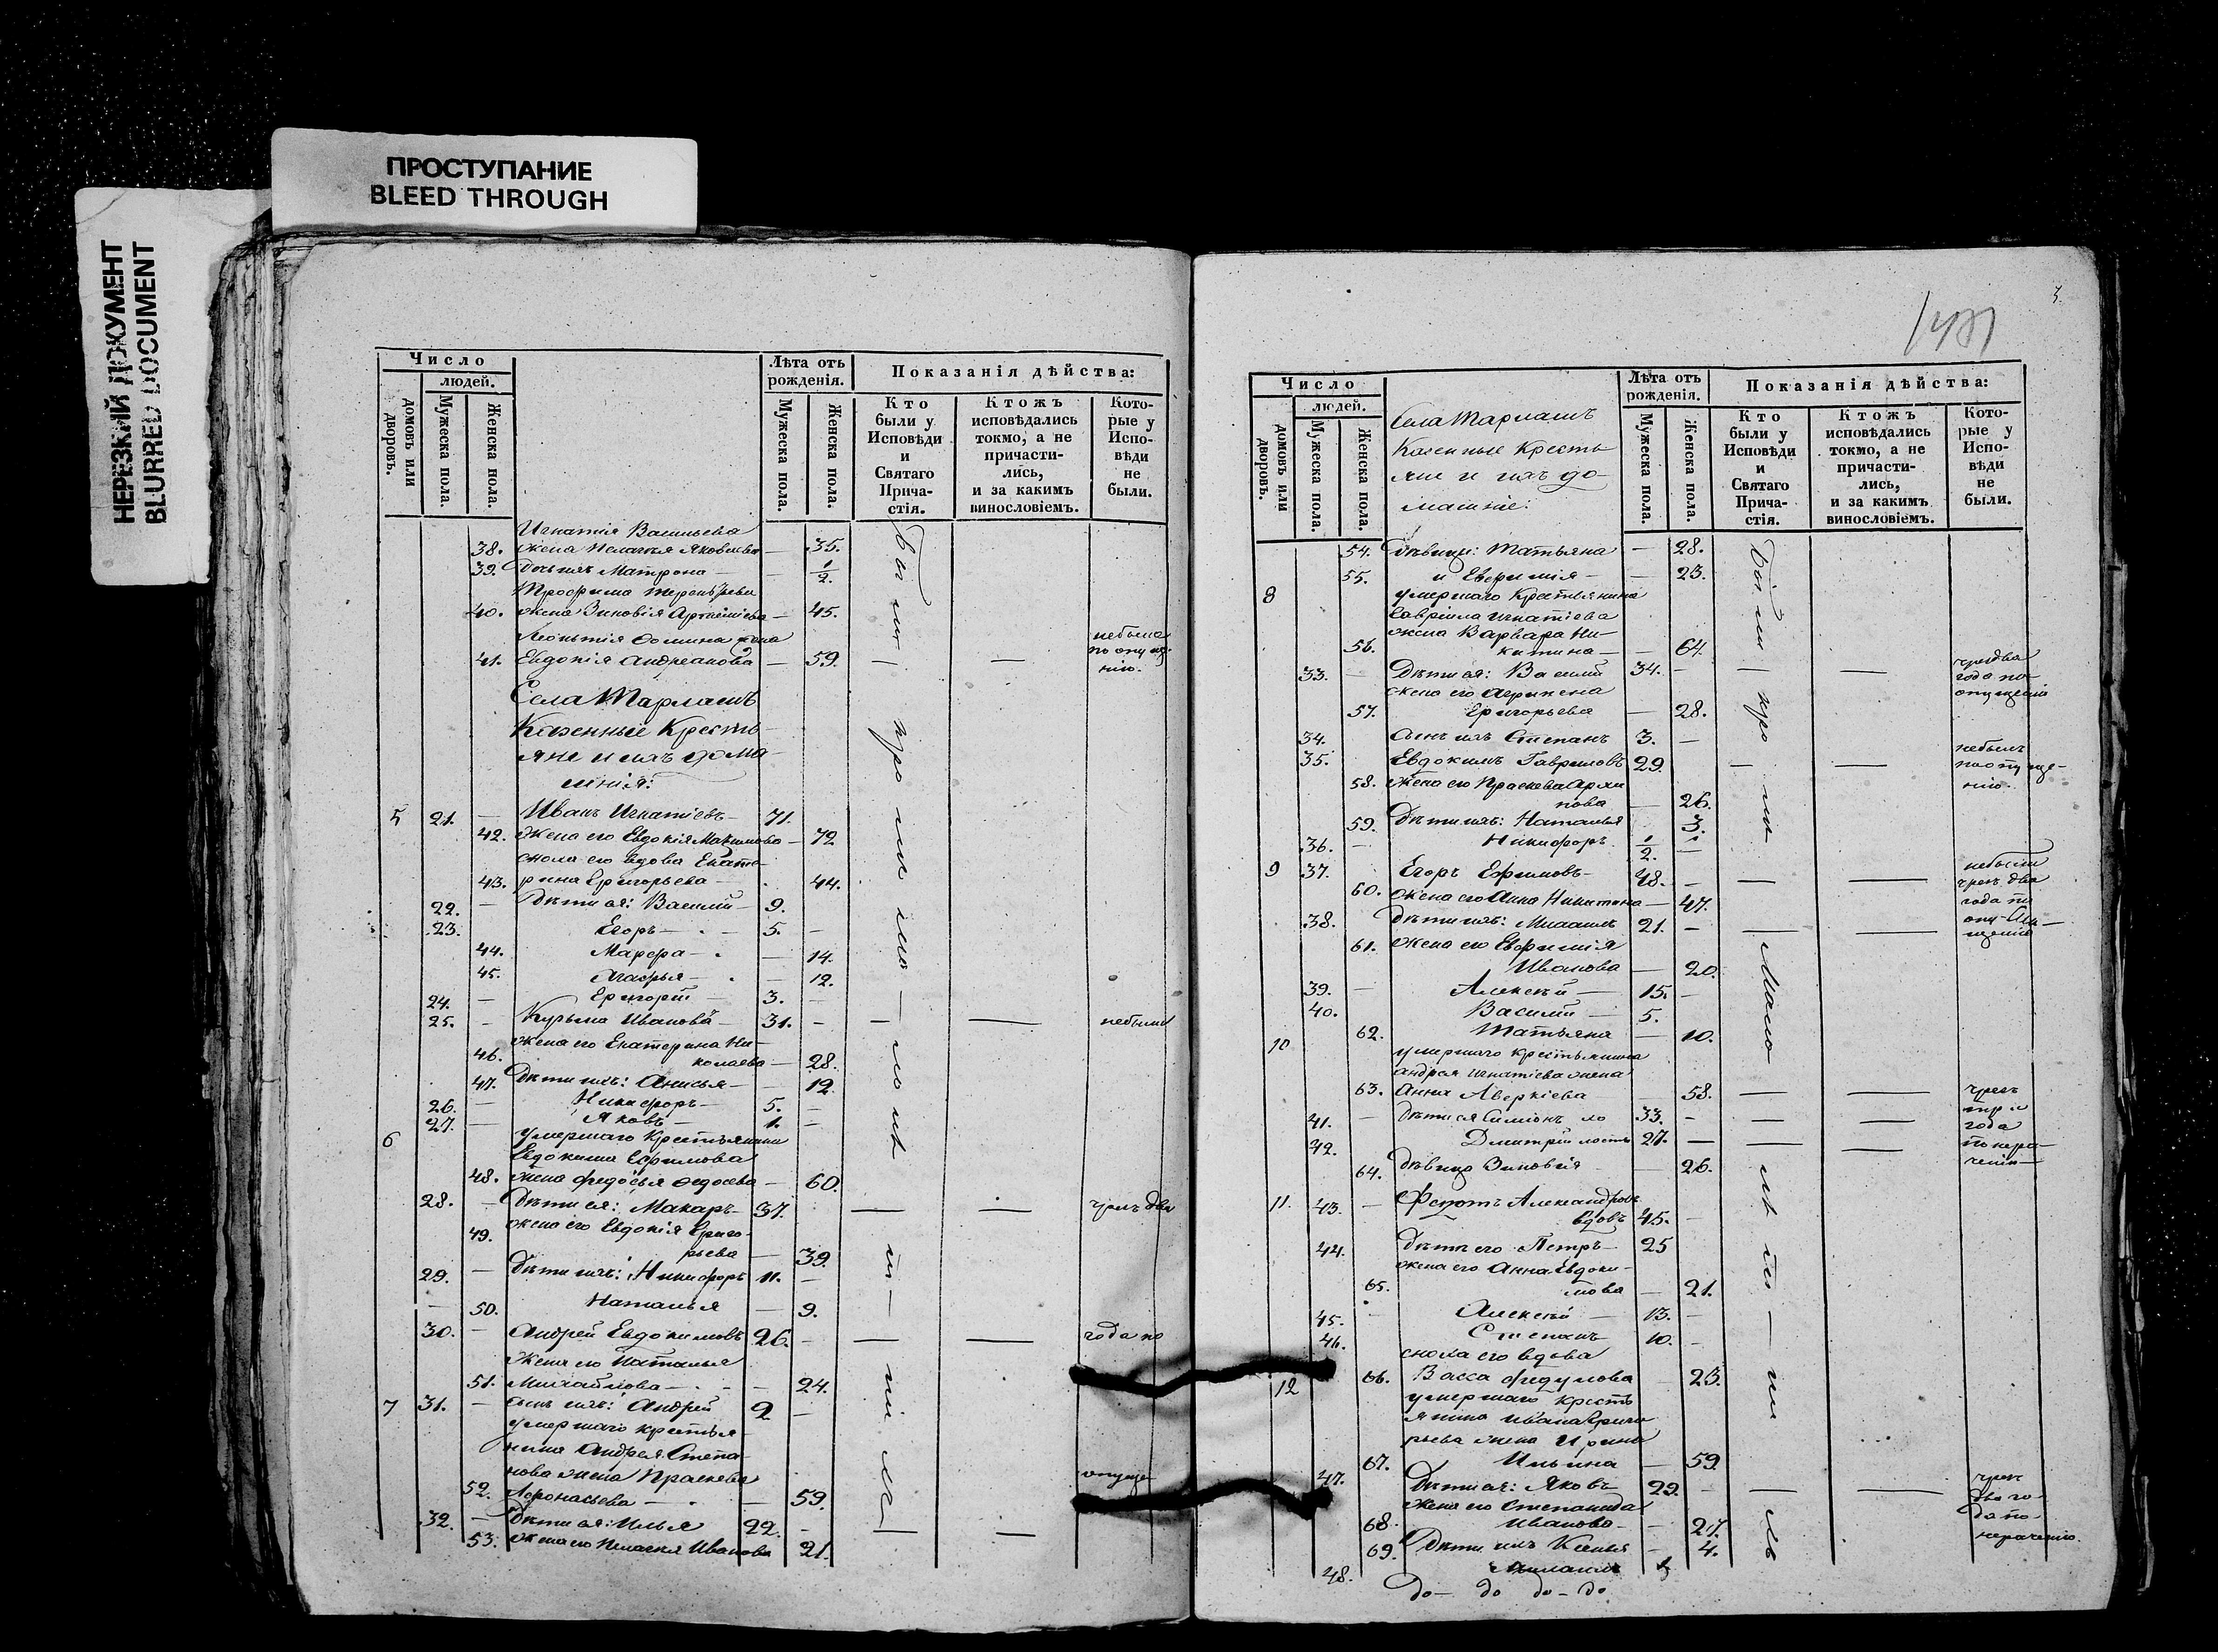 ПРОСТУПАНИЕ
BLEED THROUGH
НЕРЕЗКИЙ ДОКУМЕНТ
BLURRED DOCUMENT
Число
людей.
домовъ или дворовъ.
Мужеска пола.
Женска пола.
Лѣта отъ рожденія.
Мужеска пола.
Женска пола.
Показанія дѣйства:
Кто были у Исповѣди и Святаго Причастія.
Ктожъ исповѣдались токмо, а не причастились, и за какимъ винословіемъ.
Которые у Исповѣди не были.
Игнатія Васильева
38. жена Пелагея Яковлева — 35.
39. Дочь ихъ Матрона — 1/2.
Трофима Терентьева
40. жена Зиновія — 45.
Леонтія Фомина жена
41. Евдокія Андреанова — 59. — — небыла по опущенію.
Села Тарлашъ
Казенные Кресть-
яне и ихъ дома-
шнія:
5 21. — Иванъ Игнатіевъ — 71.
42. жена его Евдокія Максимова — 72
сноха его вдова Екате-
43. рина Григорьева — 44.
22. — Дѣти ея: Василій — 9.
23. Егоръ — 5. —
44. Марфа — 14.
45. Агафья — 12.
24. — Григорій — 3. —
25. — Кузьма Ивановъ — 31. — — — небыли
жена его Екатерина Ни-
46. колаева — 28.
47. Дѣти ихъ: Анисья — 12.
26. — Никифоръ — 5. —
27. — Яковъ — 1. —
6 умершаго Крестьянина
Евдокима Ефимова
48. жена Федосья Федосева — 60.
28. — Дѣти ея: Макаръ — 37. — — чрезъ два
49. жена его Евдокія Григо-
рьева — 39.
29. — Дѣти ихъ: Никифоръ 11. —
50. Наталья — 9.
30. — Андрей Евдокимовъ 26. — — — года по
жена его Наталья
51. Михайлова — 24.
7 31. — сынъ ихъ: Андрей 2 —
умершаго крестья-
нина Андрея Степа-
нова жена Праскева
52. Афонасьева — 59.
32. — Дѣти ея: Илья 22. —
53. жена его Пелагея Иванова 21.
3.
Число
людей.
домовъ или дворовъ.
Мужеска пола.
Женска пола.
Села Тарлашъ
Казенные Кресть-
яне и ихъ до-
машніе:
Лѣта отъ рожденія.
Мужеска пола.
Женска пола.
Показанія дѣйства:
Кто были у Исповѣди и Святаго Причастія.
Ктожъ исповѣдались токмо, а не причастились, и за какимъ винословіемъ.
Которые у Исповѣди не были.
54. дѣвицы: Татьяна — 28.
55. и Евфимія — 23.
8 умершаго Крестьянина
Гавріила Игнатіева
жена Варвара Ни-
56. китина — 64.
33. — Дѣти ея: Василій 34. — — — чрез два года по опущенію
жена его Агрипена
57. Григорьева — 28.
34. сынъ ихъ Степанъ 3. —
35. Евдокимъ Гавриловъ 29. — — небылъ по опущенію.
58. жена его Праскева Архи-
пова — 26.
59. Дѣти ихъ: Наталья 3.
36. — Никифоръ 1/2. —
9 37. Егоръ Ефимовъ — 48. — — — небыли чрез два года по опущенію
60. жена его Анна Никитина — 47.
38. Дѣти ихъ: Михаилъ 21. — — —
61. жена его Евфимія
Иванова — 20.
39. — Алексѣй — 15. —
40. Василій — 5.
62. Татьяна — 10.
10 умершаго крестьянина
Андрея Игнатіева жена
63. Анна Аверкіева 58. — — чрез три года
41. — Дѣти ея Симіонъ 33. — — —
42. Дмитрій 27. — — —
64. дѣвица Зиновія — 26.
11. 43. — Ѳедотъ Александровъ
вдовъ 45. —
44. Дѣти его Петръ — 25
жена его Анна Евдоки-
65. мова — 21.
45. — Алексѣй — 13. —
46. Степанъ 10. —
сноха его вдова
66. Васса Федулова — 23.
12 умершаго Кресть-
янина Ивана Григо-
рьева жена Ирина
67. Ильина — 59.
47. Дѣти ея: Яковъ 29. — — — чрез два года по нераченію.
жена его Степанида
68. Иванова — 27.
69. Дѣти ихъ Ксенья — 4.
48. Михаилъ 1